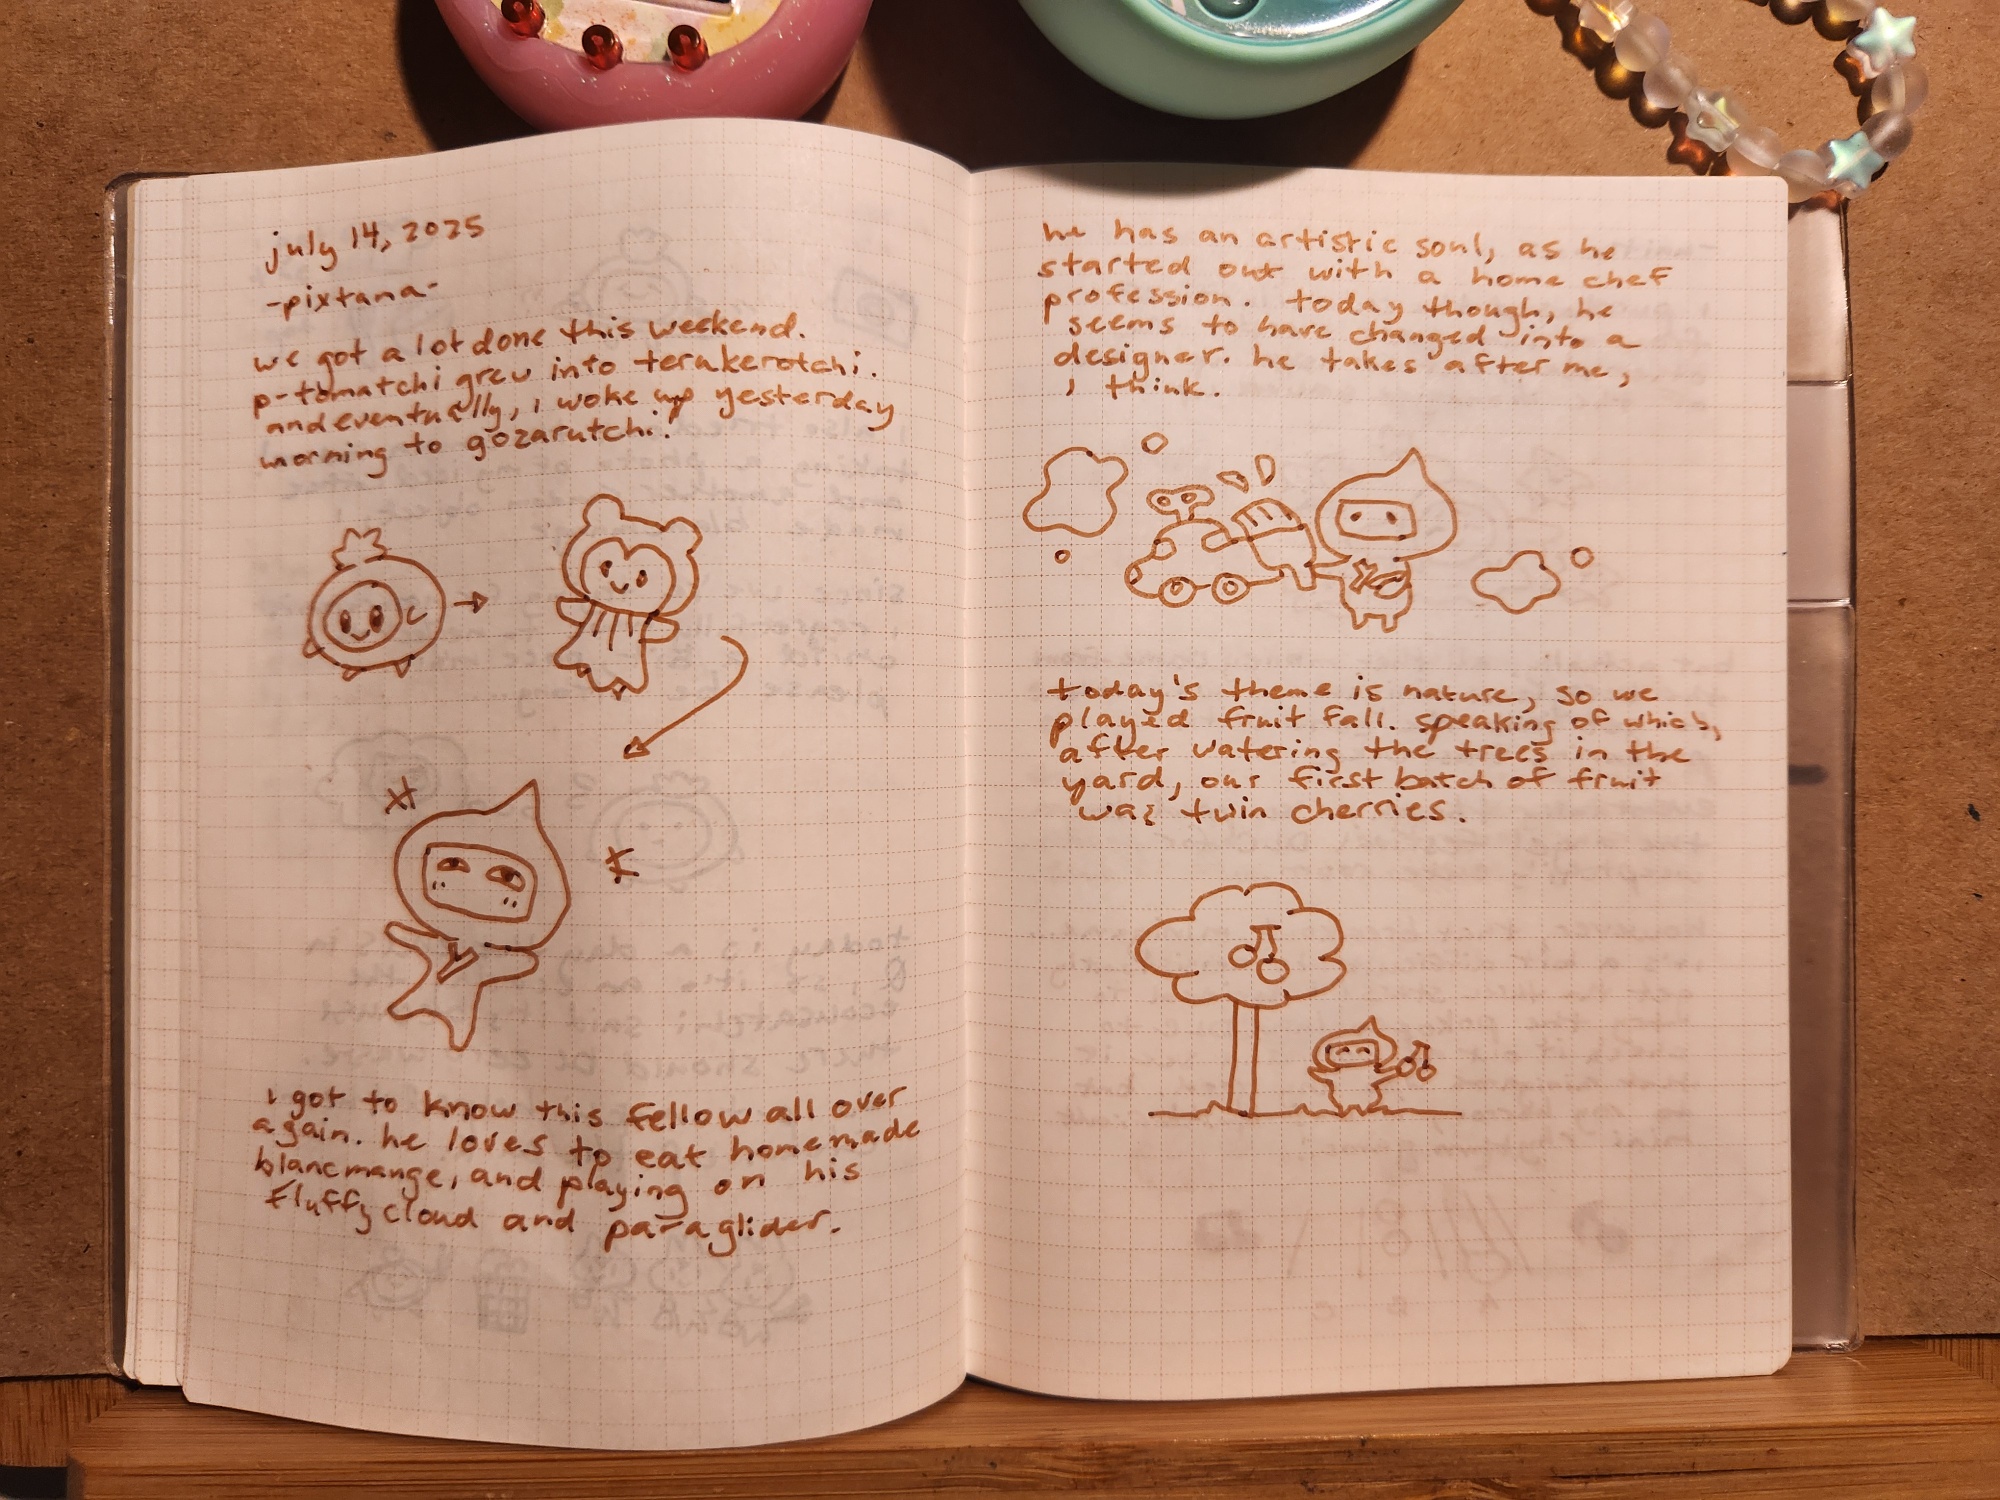 july 14, 2025
-pixtana-
we got a lot done this weekend.
p-tomatchi grew into terukerotchi.
and eventually, i woke up yesterday
morning to gozarutchi!
i got to know this fellow all over
again. he loves to eat homemade
blancmange, and playing on his
fluffy cloud and paraglider.
he has an artistic soul, as he
started out with a home chef
profession. today though, he
seems to have changed into a
designer. he takes after me,
i think.
today's theme is nature, so we
played fruit fall. speaking of which,
after watering the trees in the
yard, our first batch of fruit
was twin cherries.